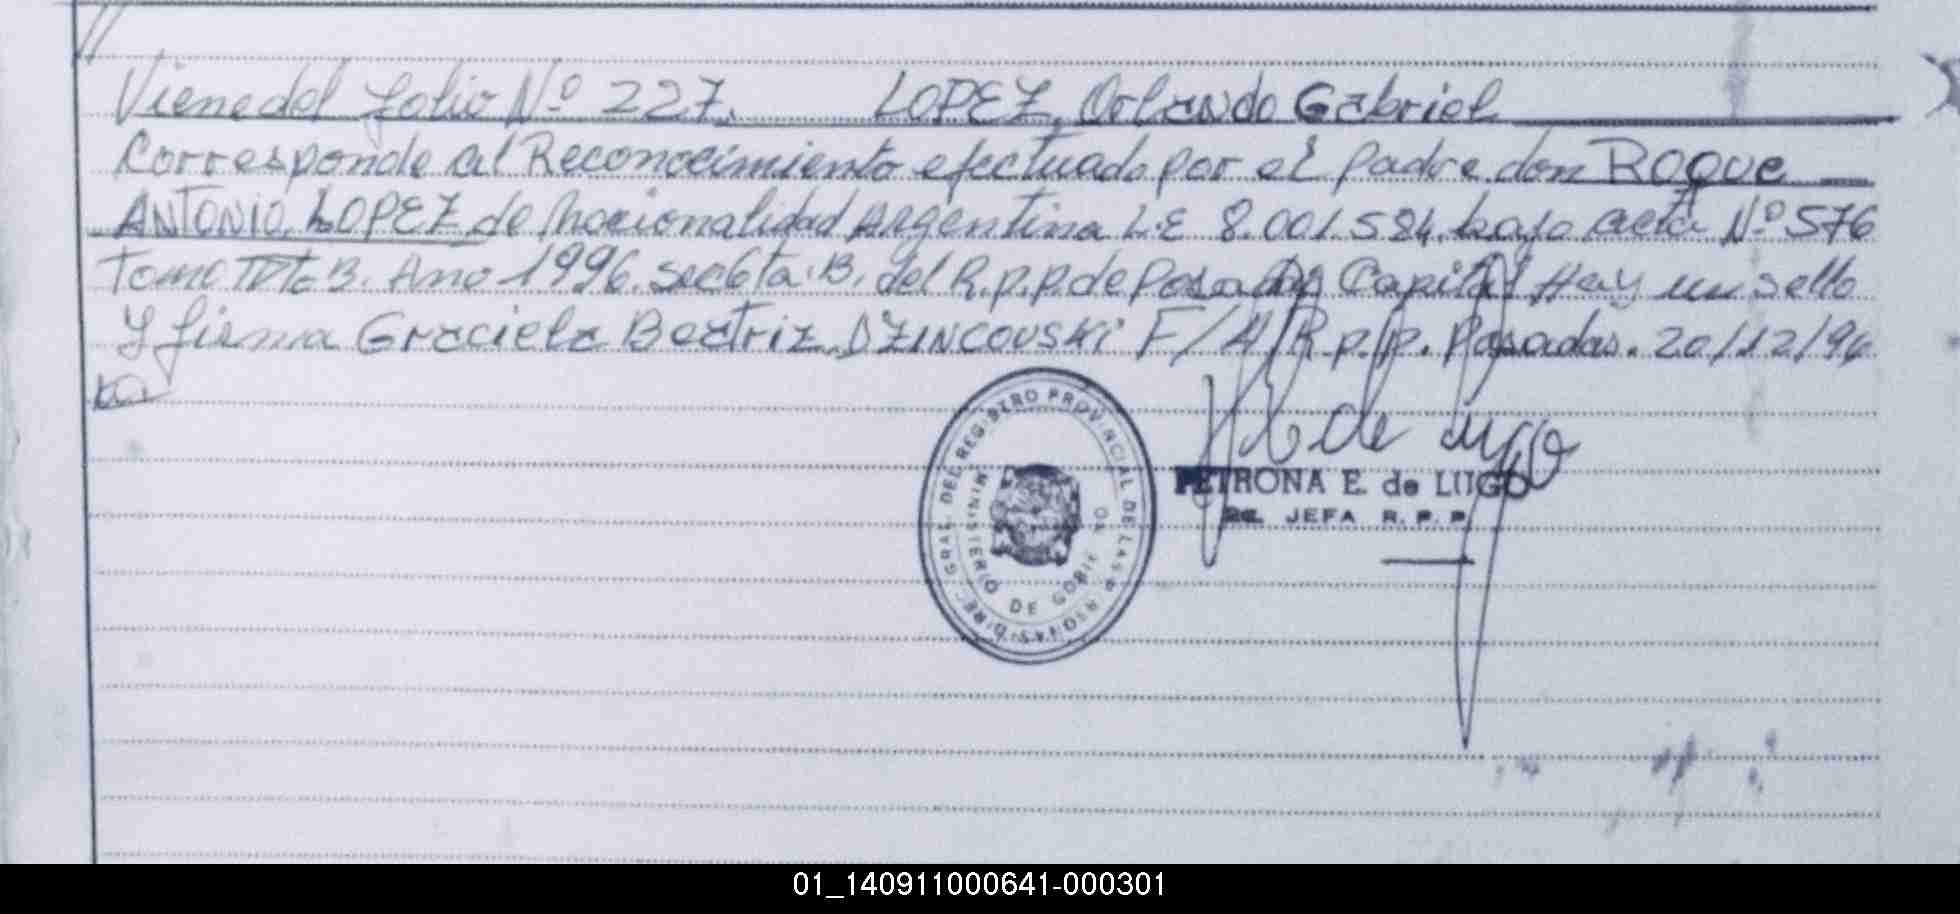 Viene del folio Nº 227. LOPEZ, Orlando Gabriel
Corresponde al Reconocimiento efectuado por el padre don ROQUE
ANTONIO, LOPEZ de nacionalidad Argentina L.E 8.001.584. bajo acta Nº 576
Tomo B. Año 1996. Secc 6ta B. del R.p.p. de Posadas Capital Hay un sello
y firma Graciela Beatriz DZINCOVSKI F/A/R.p.p. Posadas. 20/12/96
de Lugo
PETRONA E. de LUGO
JEFA R. P. P.
DIREC. GRAL. DEL REGISTRO PROVINCIAL DE LAS PERSONAS
MINISTERIO DE GOBIERNO
01_140911000641-000301